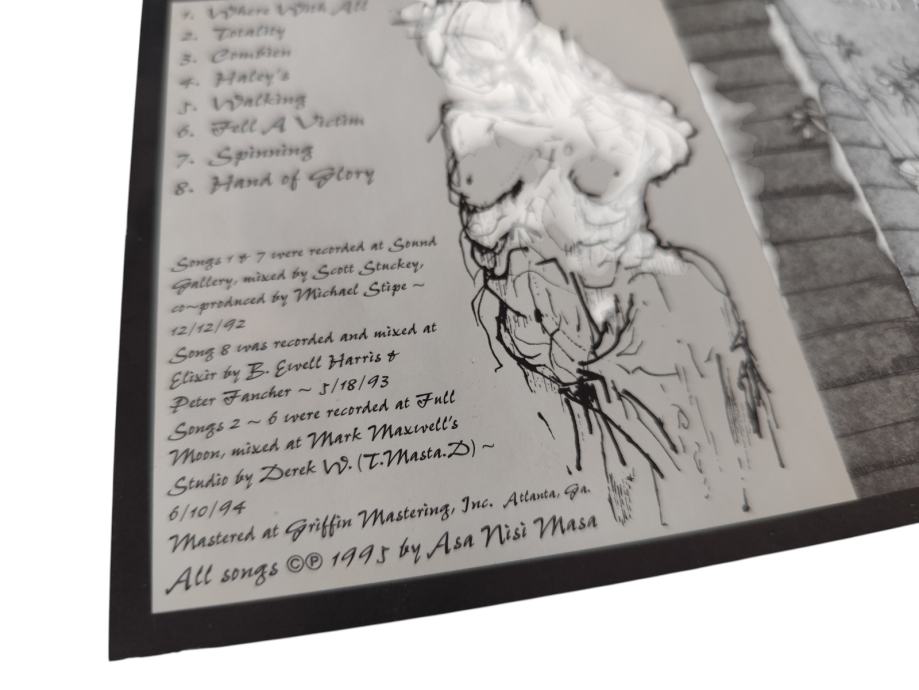 1. Where With All
2. Totality
3. Combien
4. Haley's
5. Walking
6. Fell A Victim
7. Spinning
8. Hand of Glory
Songs 1 & 7 were recorded at Sound
Gallery, mixed by Scott Stuckey,
co~produced by Michael Stipe ~
12/12/92
Song 8 was recorded and mixed at
Elixir by B. Ewell Harris &
Peter Fancher ~ 5/18/93
Songs 2 ~ 6 were recorded at Full
Moon, mixed at Mark Maxwell's
Studio by Derek W. (T.Masta.D) ~
6/10/94
Mastered at Griffin Mastering, Inc. Atlanta, Ga.
All songs ©℗ 1995 by Asa Nisi Masa